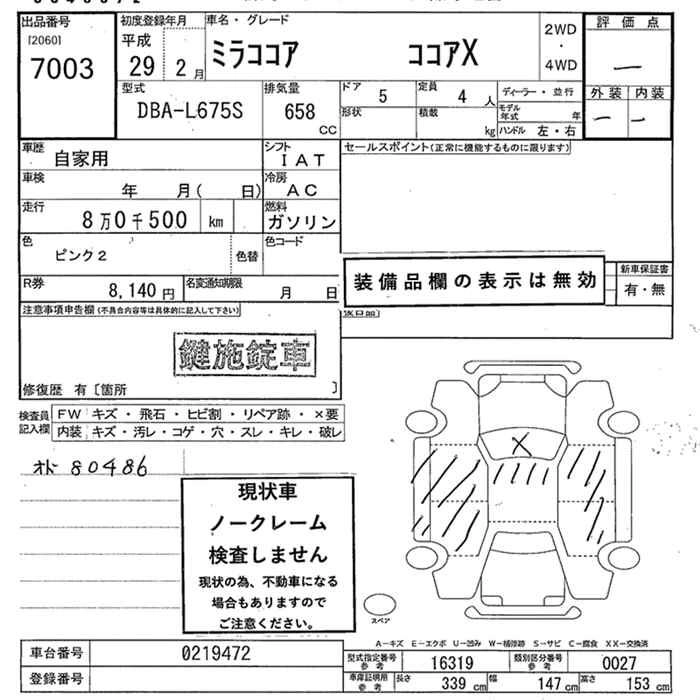 出品番号 初度登録年月 車名・グレード 2WD 評価点
[2060] 平成 ミラココア ココアX ・
7003 29 2月 4WD —
型式 排気量 ドア 5 定員 4人 ディーラー・並行 外装 内装
DBA-L675S 658 CC 形状 積載 kg モデル年式 年 — —
ハンドル 左・右
車歴 自家用 シフト IAT セールスポイント(正常に機能するものに限ります)
車検 年 月( 日) 冷房 AC
走行 8万0千500 km 燃料 ガソリン
色 ピンク2 色替 色コード
装備品欄の表示は無効 新車保証書
R券 8,140円 名変通知期限 月 日 有・無
注意事項申告欄(不具合内容等は具体的に記入して下さい)
鍵施錠車
修復歴 有〔箇所 〕
検査員記入欄 FW キズ・飛石・ヒビ割・リペア跡・×要
内装 キズ・汚レ・コゲ・穴・スレ・キレ・破レ
オド 80486
X
現状車
ノークレーム
検査しません
現状の為、不動車になる
場合もありますので
ご注意ください。
スペア
A—キズ E—エクボ U—凹み W—補修跡 S—サビ C—腐食 XX—交換済
車台番号 0219472 型式指定番号参考 16319 類別区分番号参考 0027
登録番号 車庫証明用参考 長さ 339cm 幅 147cm 高さ 153cm